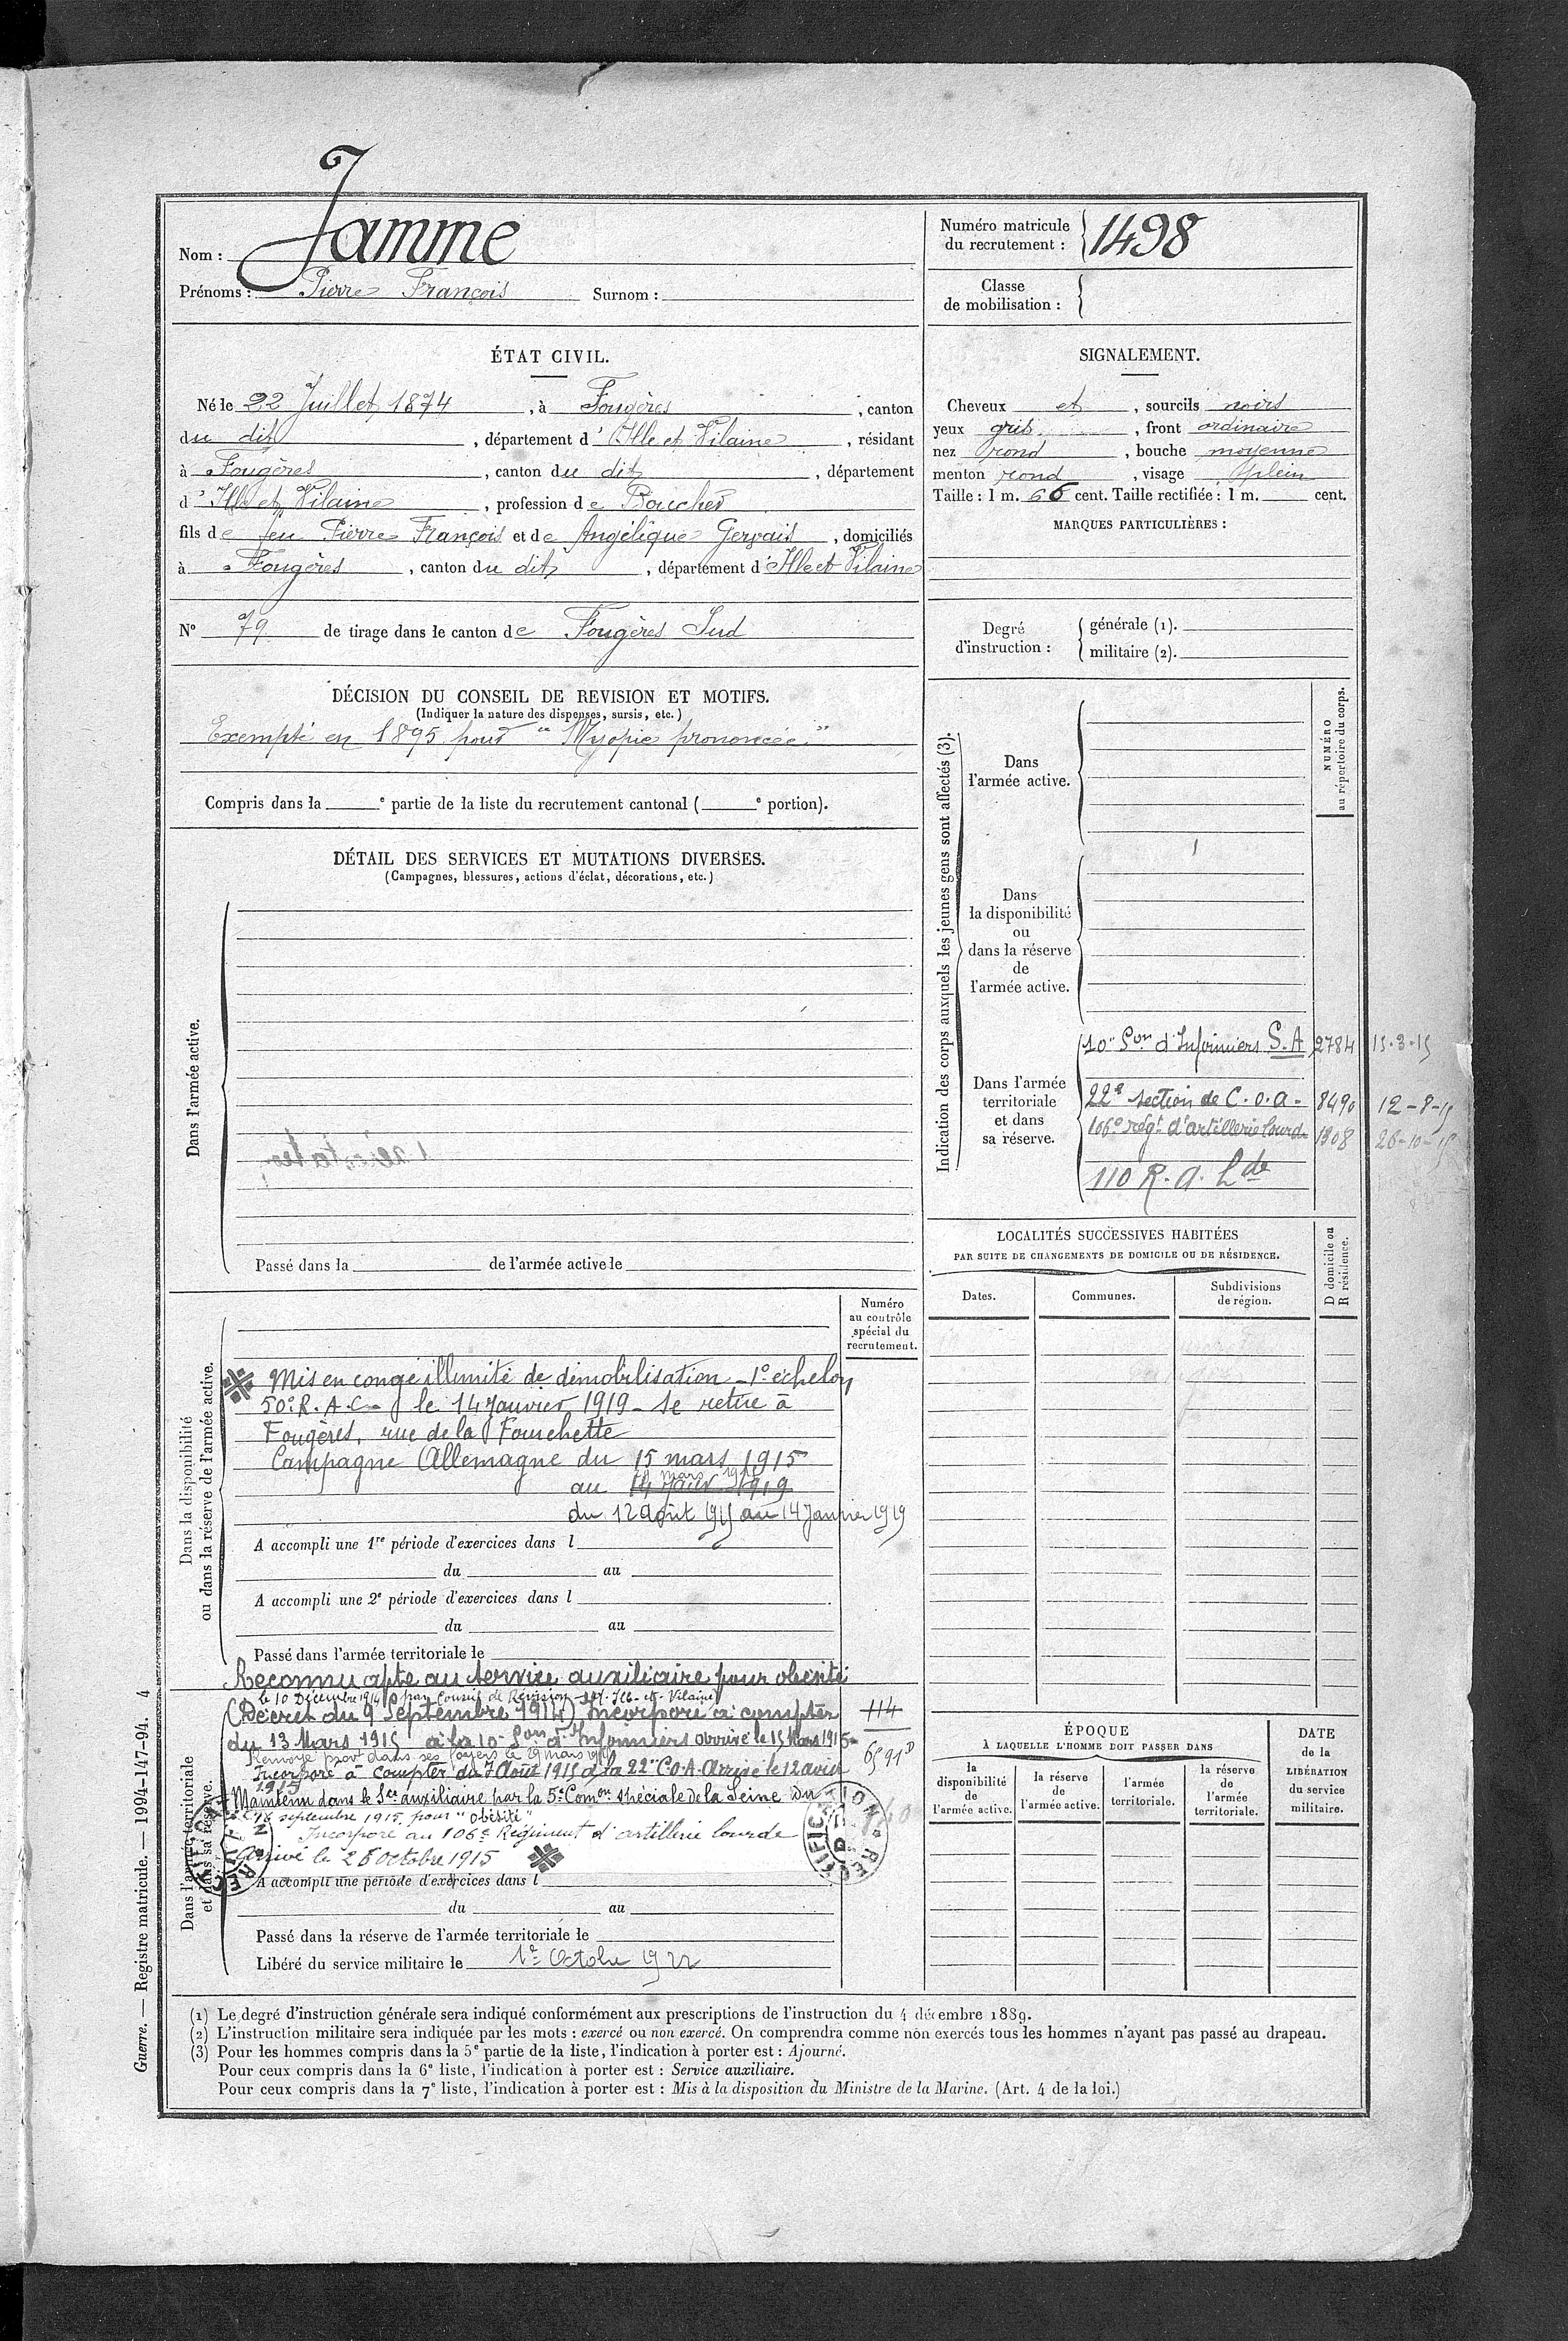 Nom : Jamme
Prénoms : Pierre François Surnom :
Numéro matricule
du recrutement : 1498
Classe
de mobilisation :
ÉTAT CIVIL.
Né le 22 Juillet 1874, à Fougères, canton
du dit, département d'Ille et Vilaine, résidant
à Fougères, canton du dit, département
d'Ille et Vilaine, profession de Boucher
fils de feu Pierre François et de Angélique Gervais, domiciliés
à Fougères, canton du dit, département d'Ille et Vilaine
N° 79 de tirage dans le canton de Fougères Sud
SIGNALEMENT.
Cheveux et, sourcils noirs
yeux gris, front ordinaire
nez rond, bouche moyenne
menton rond, visage plein
Taille : 1 m. 66 cent. Taille rectifiée : 1 m. cent.
MARQUES PARTICULIÈRES :
Degré
d'instruction :
générale (1).
militaire (2).
DÉCISION DU CONSEIL DE REVISION ET MOTIFS.
(Indiquer la nature des dispenses, sursis, etc.)
Exempté en 1895 pour "Myopie prononcée"
Compris dans la e partie de la liste du recrutement cantonal ( e portion).
DÉTAIL DES SERVICES ET MUTATIONS DIVERSES.
(Campagnes, blessures, actions d'éclat, décorations, etc.)
Dans l'armée active.
Passé dans la de l'armée active le
Indication des corps auxquels les jeunes gens sont affectés (3).
NUMÉRO
au répertoire du corps.
Dans
l'armée active.
Dans
la disponibilité
ou
dans la réserve
de
l'armée active.
Dans l'armée
territoriale
et dans
sa réserve.
10e Son d'Infirmiers S.A 2784 15-3-15
22e section de C.O.A. 8490 12-8-15
106e régt d'artillerie lourde 1308 26-10-15
110 R.A. Lde
LOCALITÉS SUCCESSIVES HABITÉES
PAR SUITE DE CHANGEMENTS DE DOMICILE OU DE RÉSIDENCE.
D domicile ou
R résidence.
Dates.
Communes.
Subdivisions
de région.
Numéro
au contrôle
spécial du
recrutement.
Dans la disponibilité
ou dans la réserve de l'armée active.
Mis en congé illimité de démobilisation - 1e échelon
50e R.A.C. le 14 Janvier 1919 - se retire à
Fougères, rue de la Fourchette
Campagne Allemagne du 15 mars 1915
au 14 Janv 1919
du 12 août 1915 au 14 Janvier 1919
A accompli une 1re période d'exercices dans l
du au
A accompli une 2e période d'exercices dans l
du au
Passé dans l'armée territoriale le
Dans l'armée territoriale
et dans sa réserve.
Reconnu apte au service auxiliaire pour obésité
le 10 Décembre 1914 par Conseil de Révision Ille-et-Vilaine
(Décret du 9 Septembre 1914) Incorporé à compter 114
du 13 Mars 1915 à la 10e Son d'Infirmiers arrivé le 15 Mars 1915
Renvoyé provt dans ses foyers le 29 mars 1915
Incorporé à compter du 7 Août 1915 à la 22e C.O.A. Arrivé le 12 août
1915
Maintenu dans le Sce auxiliaire par la 5e Comon spéciale de la Seine du
18 septembre 1915 pour "obésité"
Incorporé au 106e Régiment d'artillerie lourde
Arrivé le 26 octobre 1915
RECTIFICATION
A accompli une période d'exercices dans l
du au
Passé dans la réserve de l'armée territoriale le
Libéré du service militaire le 1er Octobre 1922
ÉPOQUE
À LAQUELLE L'HOMME DOIT PASSER DANS
la
disponibilité
de
l'armée active.
la réserve
de
l'armée active.
l'armée
territoriale.
la réserve
de
l'armée
territoriale.
DATE
de la
LIBÉRATION
du service
militaire.
(1) Le degré d'instruction générale sera indiqué conformément aux prescriptions de l'instruction du 4 décembre 1889.
(2) L'instruction militaire sera indiquée par les mots : exercé ou non exercé. On comprendra comme non exercés tous les hommes n'ayant pas passé au drapeau.
(3) Pour les hommes compris dans la 5e partie de la liste, l'indication à porter est : Ajourné.
Pour ceux compris dans la 6e liste, l'indication à porter est : Service auxiliaire.
Pour ceux compris dans la 7e liste, l'indication à porter est : Mis à la disposition du Ministre de la Marine. (Art. 4 de la loi.)
Guerre. — Registre matricule. — 1994-147-94. 4